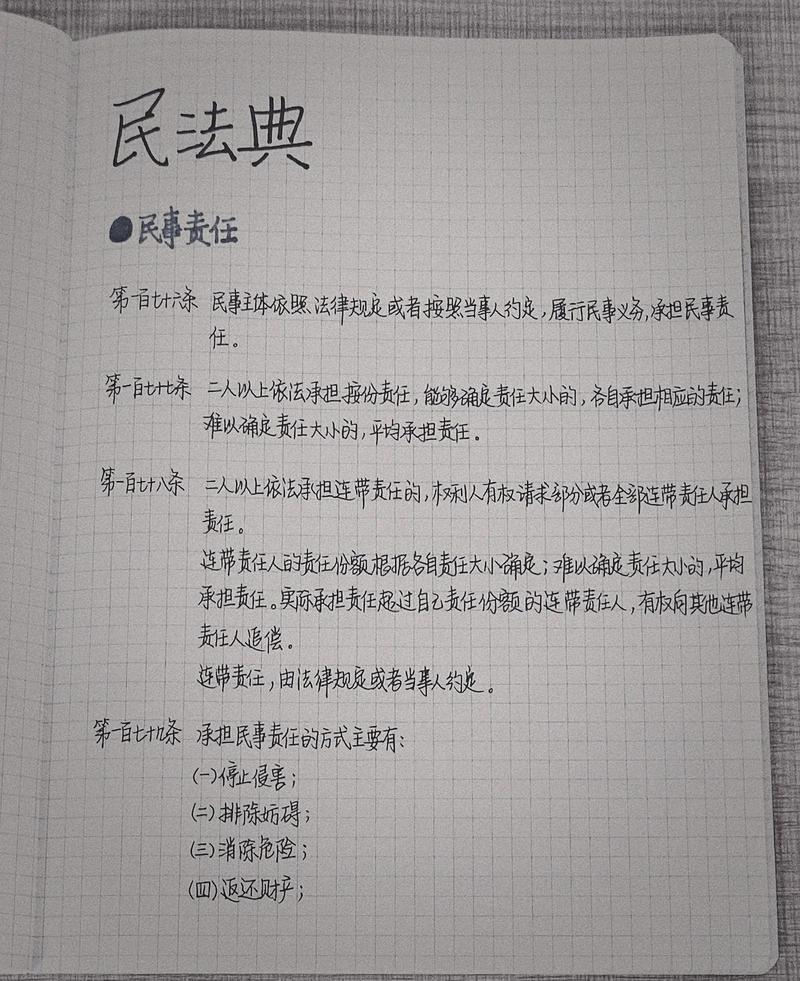 民法典
●民事责任
第一百七十六条 民事主体依照法律规定或者按照当事人约定,履行民事义务,承担民事责
任。
第一百七十七条 二人以上依法承担按份责任,能够确定责任大小的,各自承担相应的责任;
难以确定责任大小的,平均承担责任。
第一百七十八条 二人以上依法承担连带责任的,权利人有权请求部分或者全部连带责任人承担
责任。
连带责任人的责任份额根据各自责任大小确定;难以确定责任大小的,平均
承担责任。实际承担责任超过自己责任份额的连带责任人,有权向其他连带
责任人追偿。
连带责任,由法律规定或者当事人约定。
第一百七十九条 承担民事责任的方式主要有:
(一)停止侵害;
(二)排除妨碍;
(三)消除危险;
(四)返还财产;